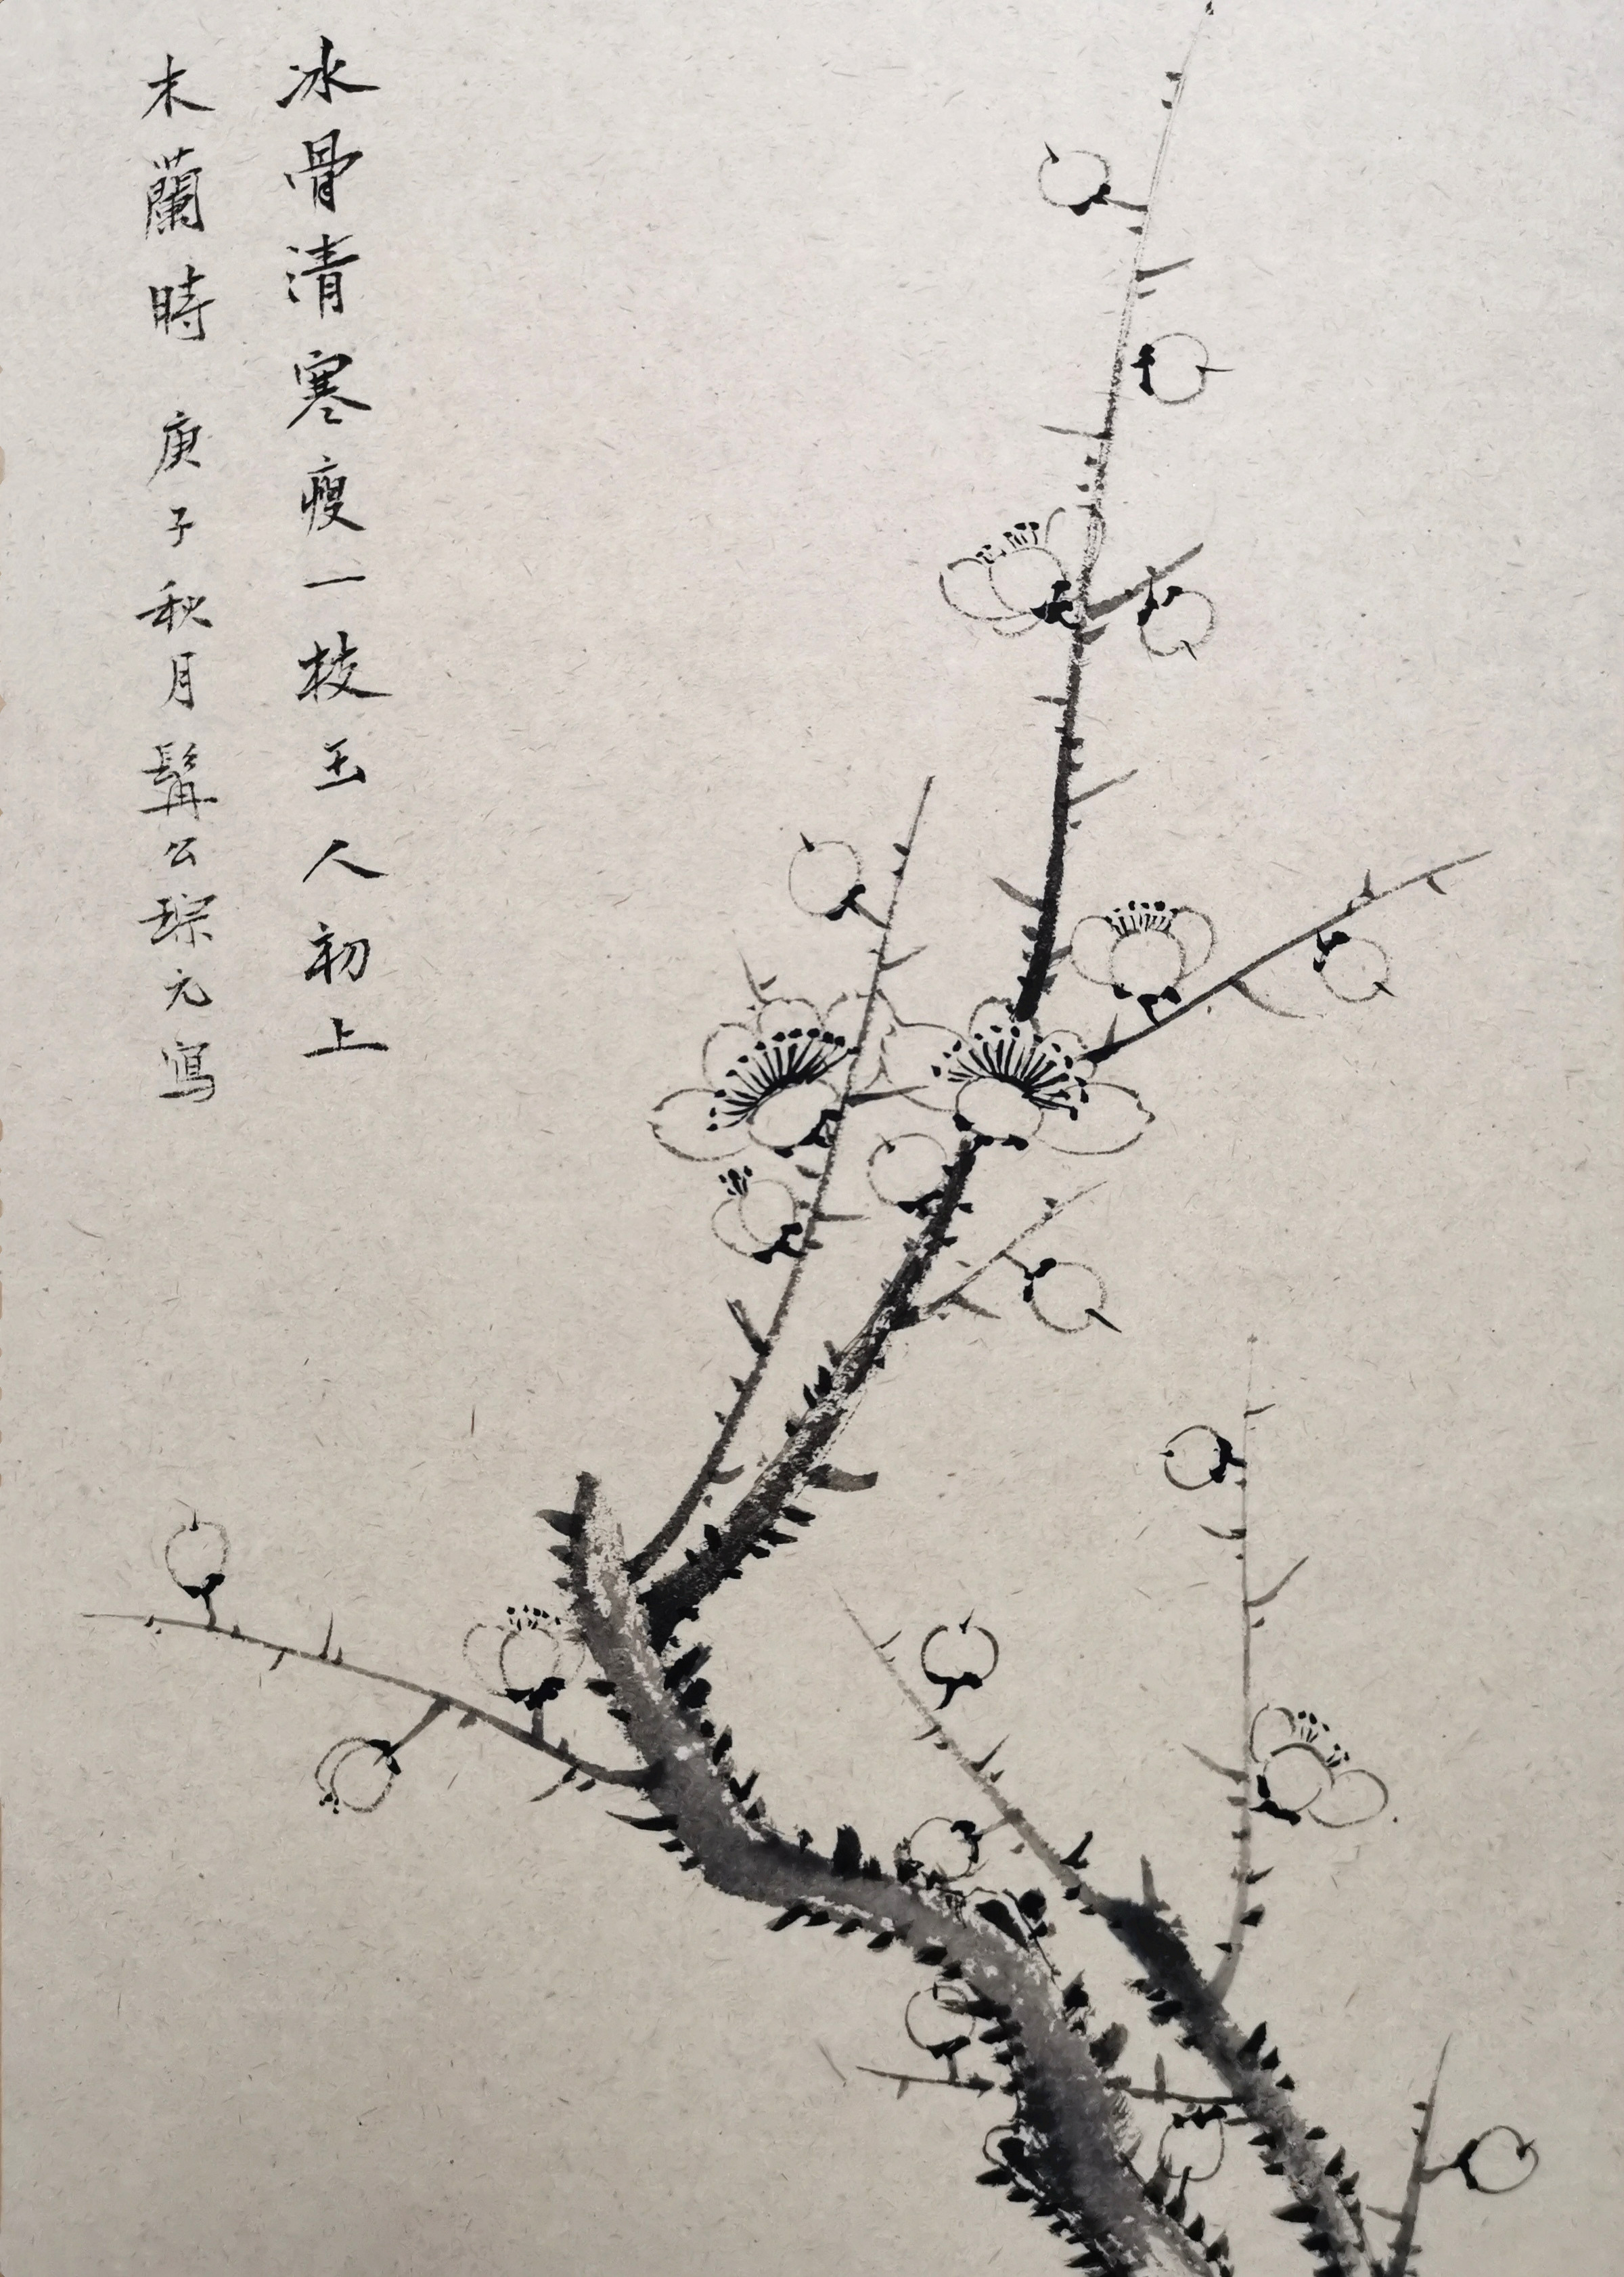 冰骨清寒瘦一枝玉人初上
木蘭時 庚子秋月髯公琮元寫